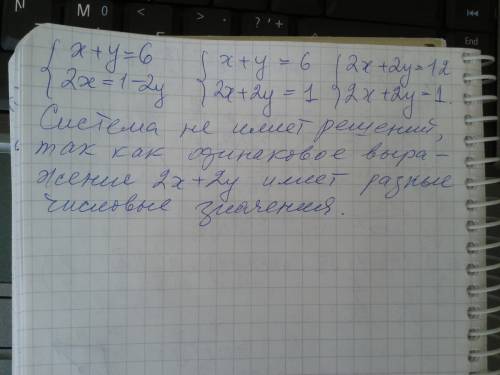 { x+y=6 { x+y=6 { 2x+2y=12
{ 2x=1-2y { 2x+2y=1 { 2x+2y=1.
Система не имеет решений,
так как одинаковое выра-
жение 2x+2y имеет разные
числовые значения.
N
M 0
End